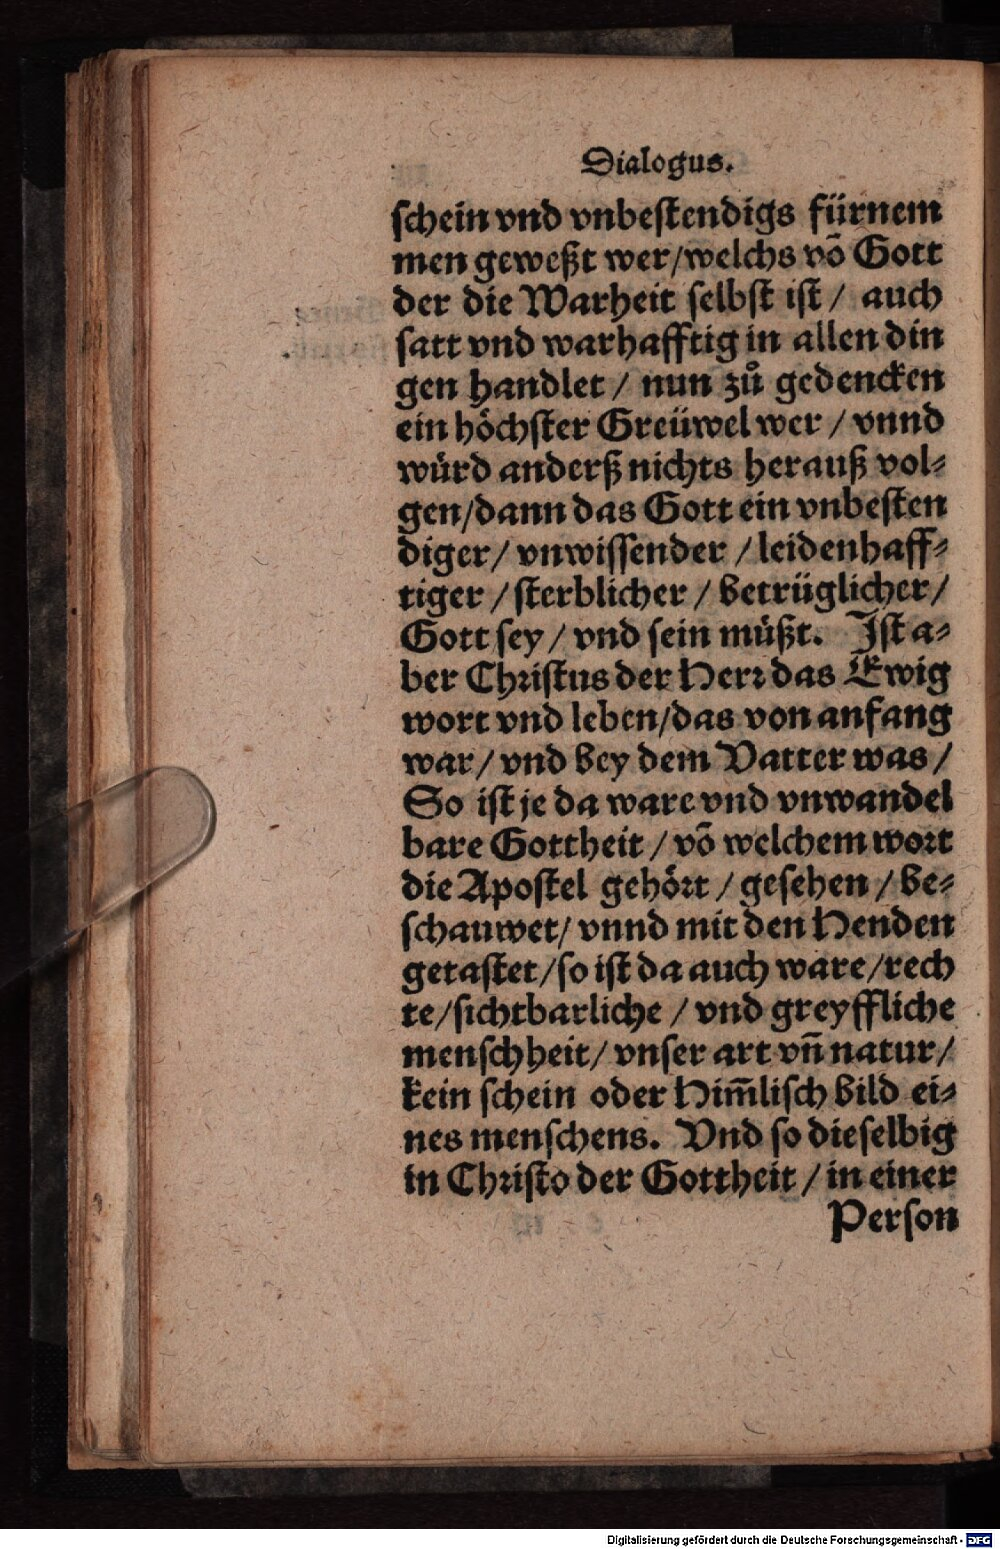 Dialogus.
schein vnd vnbestendigs fürnem
men geweßt wer/welchs võ Gott
der die Warheit selbst ist / auch
satt vnd warhafftig in allen din
gen handlet / nun zů gedencken
ein hoͤchster Greüwel wer / vnnd
würd anderß nichts herauß vol⸗
gen/dann das Gott ein vnbesten
diger/ vnwissender /leidenhaff⸗
tiger / sterblicher / betrüglicher/
Gott sey / vnd sein müßt. Ist a⸗
ber Christus der Herr das Ewig
wort vnd leben/das von anfang
war/ vnd bey dem Vatter was /
So ist je da ware vnd vnwandel
bare Gottheit / võ welchem wort
die Apostel gehoͤrt / gesehen / be⸗
schauwet/ vnnd mit den Henden
getastet/so ist da auch ware/rech
te/sichtbarliche / vnd greyffliche
menschheit/ vnser art vñ natur/
kein schein oder Him̃lisch bild ei⸗
nes menschens. Vnd so dieselbig
in Christo der Gottheit / in einer
Person
Digitalisierung gefördert durch die Deutsche Forschungsgemeinschaft - DFG